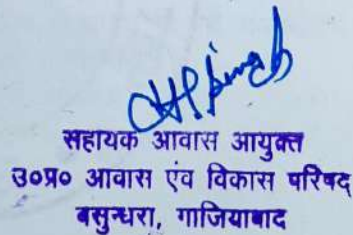 सहायक आवास आयुक्त
उ०प्र० आवास एंव विकास परिषद
बसुन्धरा, गाजियाबाद